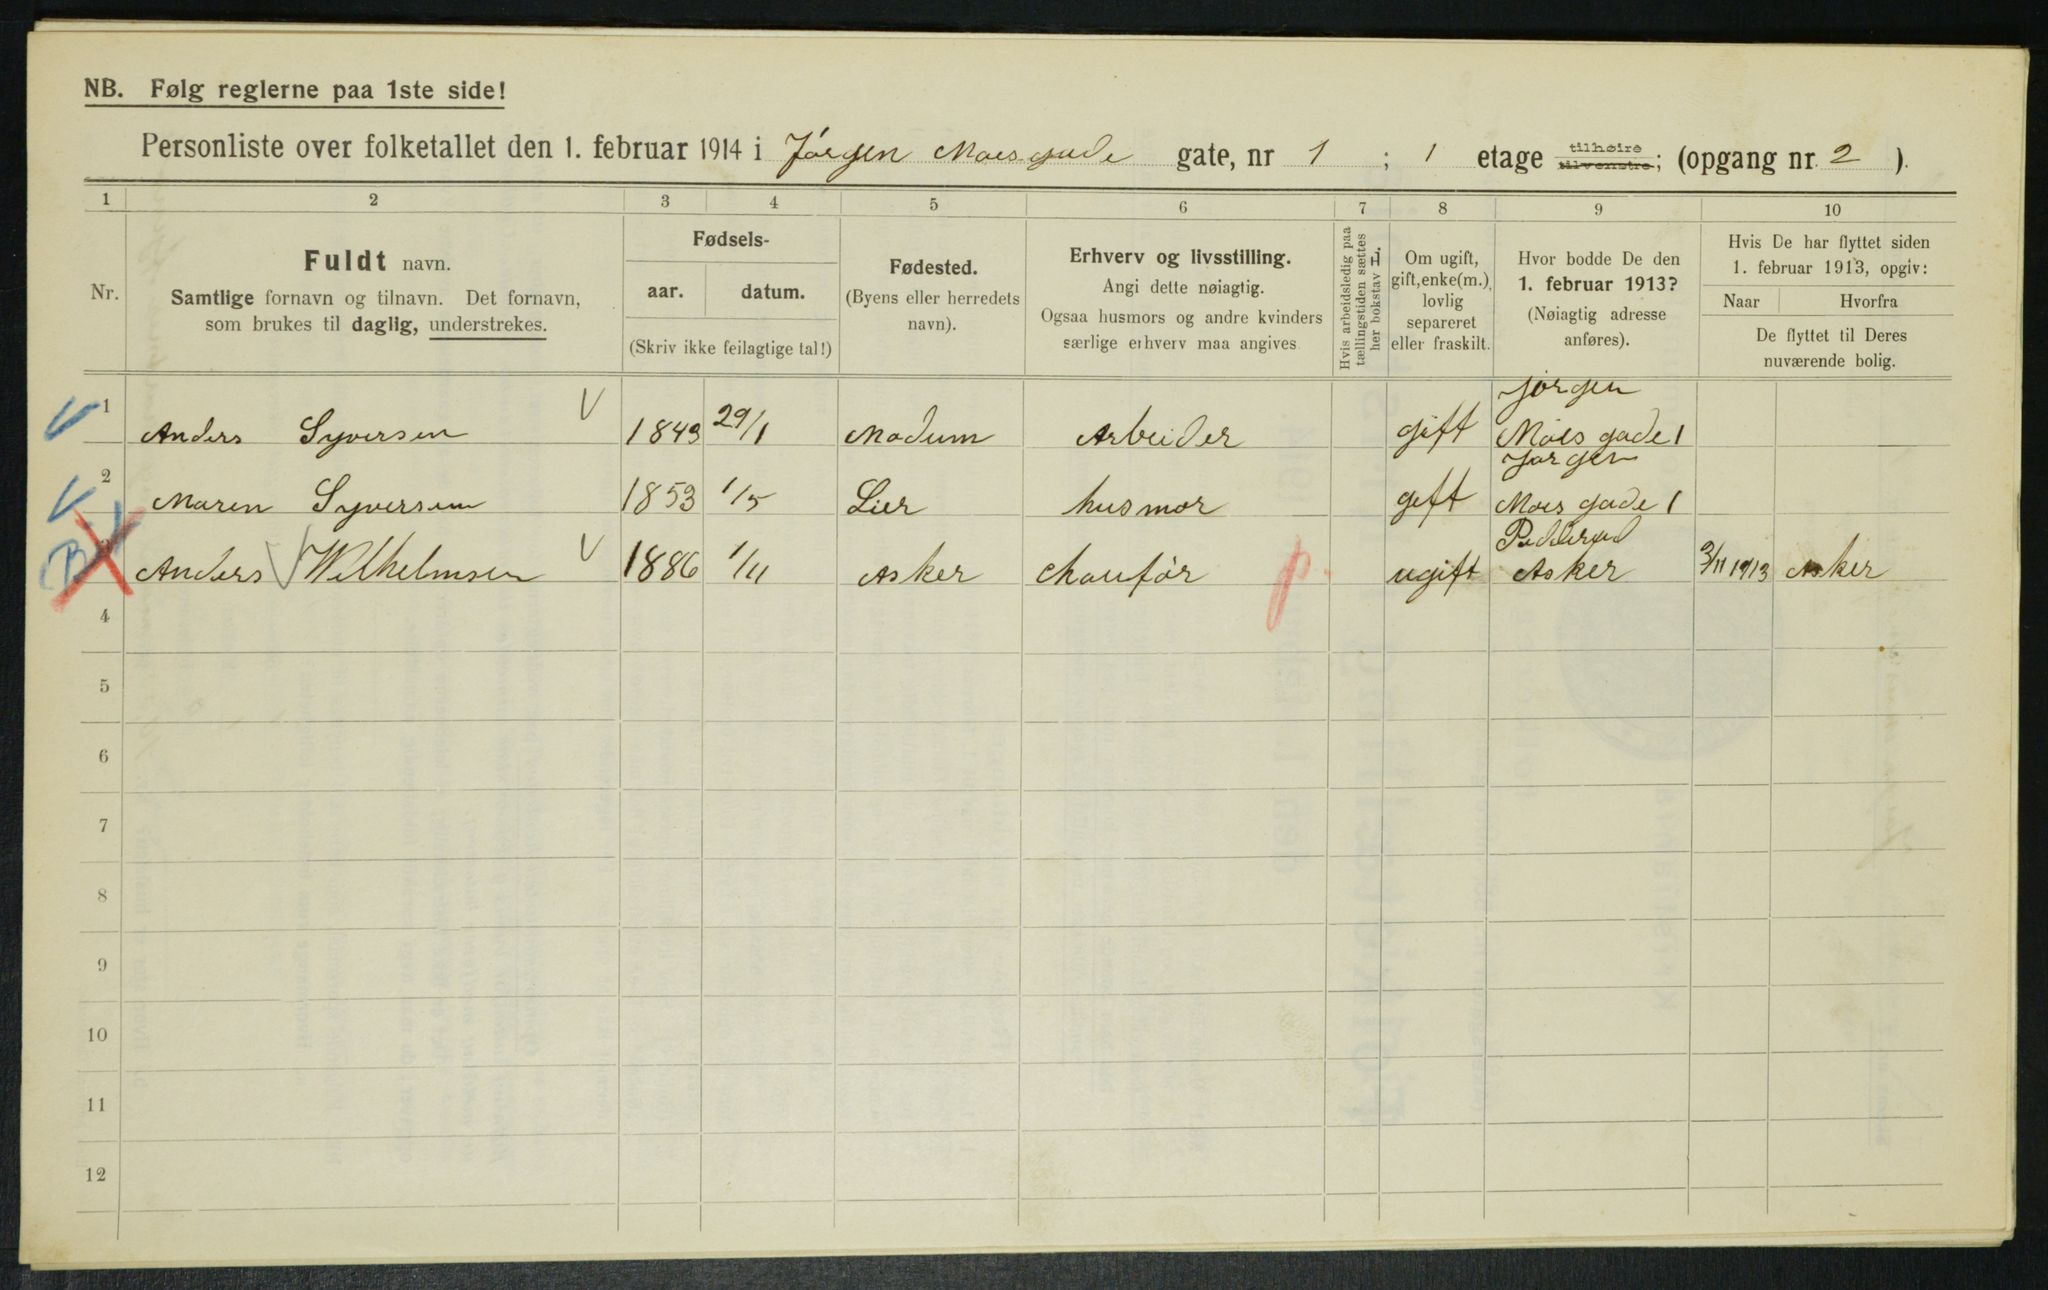 NB. Følg reglerne paa 1ste side!
Personliste over folketallet den 1. februar 1914 i Jørgen Moes gade gate, nr 1 ; 1 etage tilhøire tilvenstre; (opgang nr. 2 ).
1 2 3 4 5 6 7 8 9 10
Nr.
Fuldt navn.
Samtlige fornavn og tilnavn. Det fornavn,
som brukes til daglig, understrekes.
Fødsels-
aar. datum.
(Skriv ikke feilagtige tal!)
Fødested.
(Byens eller herredets
navn).
Erhverv og livsstilling.
Angi dette nøiagtig.
Ogsaa husmors og andre kvinders
særlige erhverv maa angives.
Hvis arbeidsledig paa
tællingstiden sættes
her bokstav L.
Om ugift,
gift, enke(m.),
lovlig
separeret
eller fraskilt.
Hvor bodde De den
1. februar 1913?
(Nøiagtig adresse
anføres).
Hvis De har flyttet siden
1. februar 1913, opgiv:
Naar Hvorfra
De flyttet til Deres
nuværende bolig.
1 Anders Syversen 1849 29/1 Modum Arbeider gift Jørgen Moes gade 1
2 Maren Syversen 1853 1/5 Lier husmor gift Jørgen Moes gade 1
3 Anders Wilhelmsen 1886 1/11 Asker Chaufør p. ugift Asker 3/11 1913 Asker
4
5
6
7
8
9
10
11
12